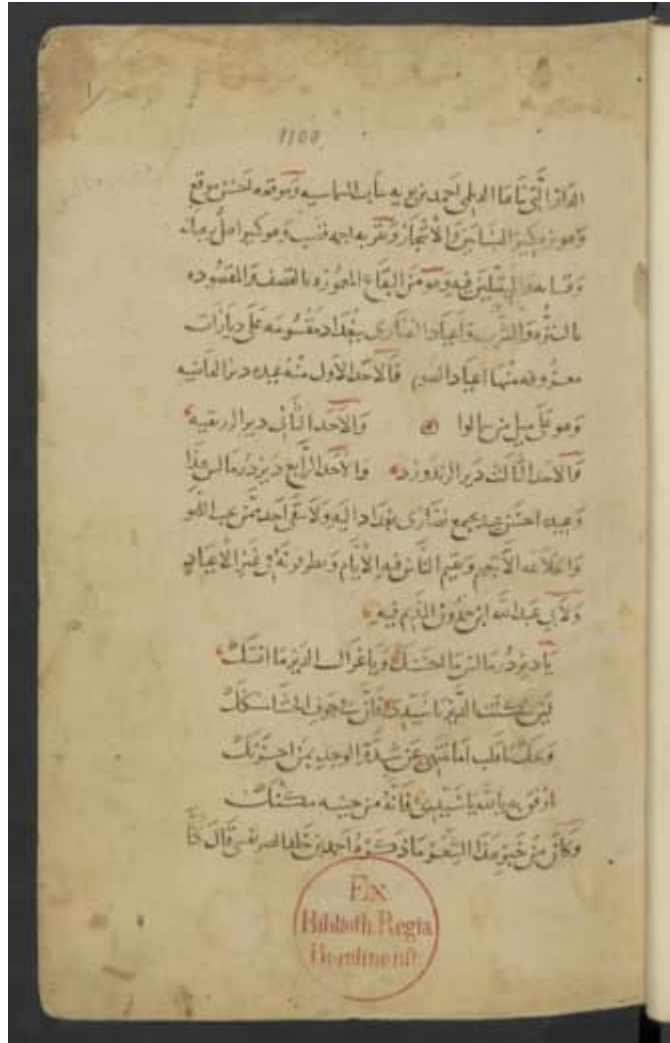 1
1100
الدار التي بناها الديلمي احمد بن بويه بباب الشماسيه وموقعه احسن موقع
وهو نزه كثير البساتين والاشجار وبقربه اجمه قصب وهو كبير اهل برهبانه
وقسانه والمتبتلين فيه وهو من البقاع المعموره بالقصف والمقصوده
بالتنزه والشرب واعياد النصارى ببغداد مقسومه على ديارات
معروفه منها اعياد الصوم فالاحد الاول منه عيده دير العاصيه
وهو على ميل من سمالوا والاحد الثاني دير الزريقيه
والاحد الثالث دير الزندورد والاحد الرابع دير درمالس هذا
وعيده احسن عيد يجمع نصارى بغداد اليه ولا يبقى احد ممن يحب اللهو
والخلاعه الا تبعهم ويقيم الناس فيه الايام ويطرقونه في غير الاعياد
ولابي عبد الله ابن حمدون النديم فيه
يا دير درمالس ما احسنك ويا غزال الدير ما افتنك
لين سكنت الدير يا سيدي فان في جوف الحشا مسكنك
ويحك يا قلب اما تنتهي عن شدة الوجد بمن احزنك
ارفق به بالله يا سيدي فانه من حينه مكنك
وكان من خبر هذا الشعر ما ذكره احمد بن خلد الصريفيني قال كنا
Ex
Biblioth. Regia
Berolinensi.